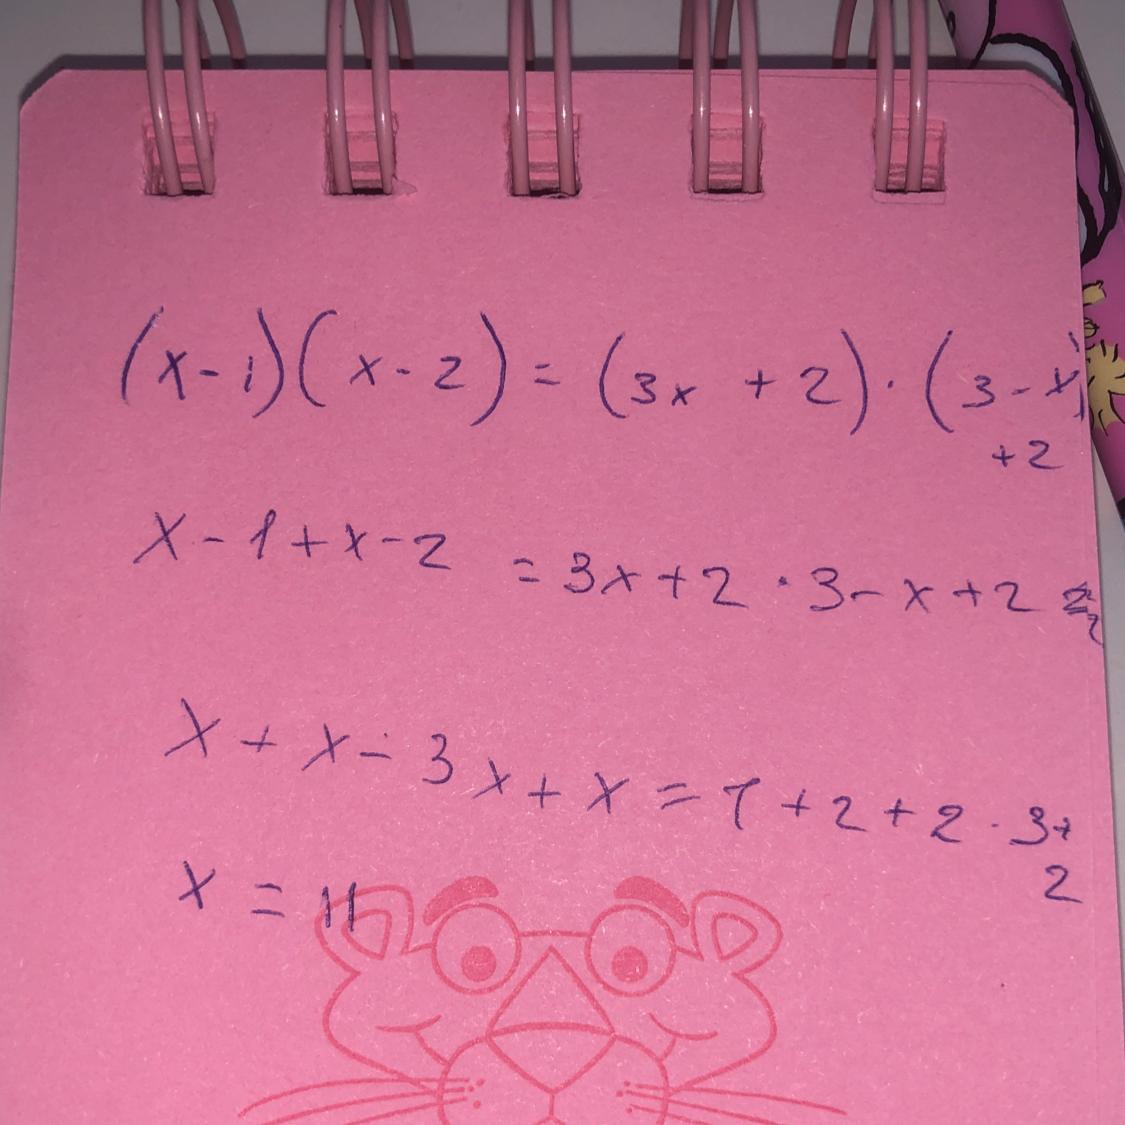 (x-1)(x-2) = (3x +2)·(3-x)
+2
x-1+x-2 = 3x+2·3-x+2
x+x-3x+x=1+2+2·3+
2
x = 11